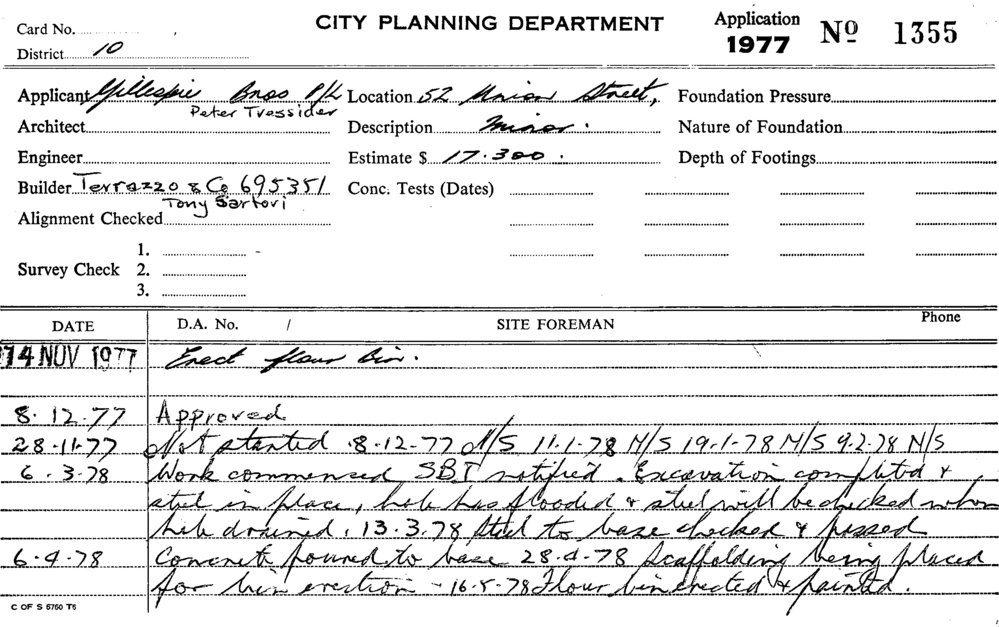 Card No.
CITY PLANNING DEPARTMENT
Application 1977 Nº 1355
District 10
Applicant Gillespie Bros P/L Location 52 Union Street, Foundation Pressure
Peter Tressider
Architect Description Minor. Nature of Foundation
Engineer Estimate $ 17.300. Depth of Footings
Builder Terrazzo & Co 695351 Conc. Tests (Dates)
Tony Sartori
Alignment Checked
1.
Survey Check 2.
3.
DATE D.A. No. / SITE FOREMAN Phone
14 NOV 1977 Erect flour bin.
8.12.77 Approved
28-11-77 Not started 8-12-77 N/S 11.1-78 N/S 19-1-78 N/S 9.2.78 N/S
6.3.78 Work commenced SBI notified. Excavation completed &
steel in place, hole has flooded & steel will be checked when
hole drained. 13.3.78 Steel to base checked & passed
6-4-78 Concrete poured to base 28-4-78 Scaffolding being placed
for bin erection - 16-5-78 Flour bin erected & painted.
C OF S 5760 T6